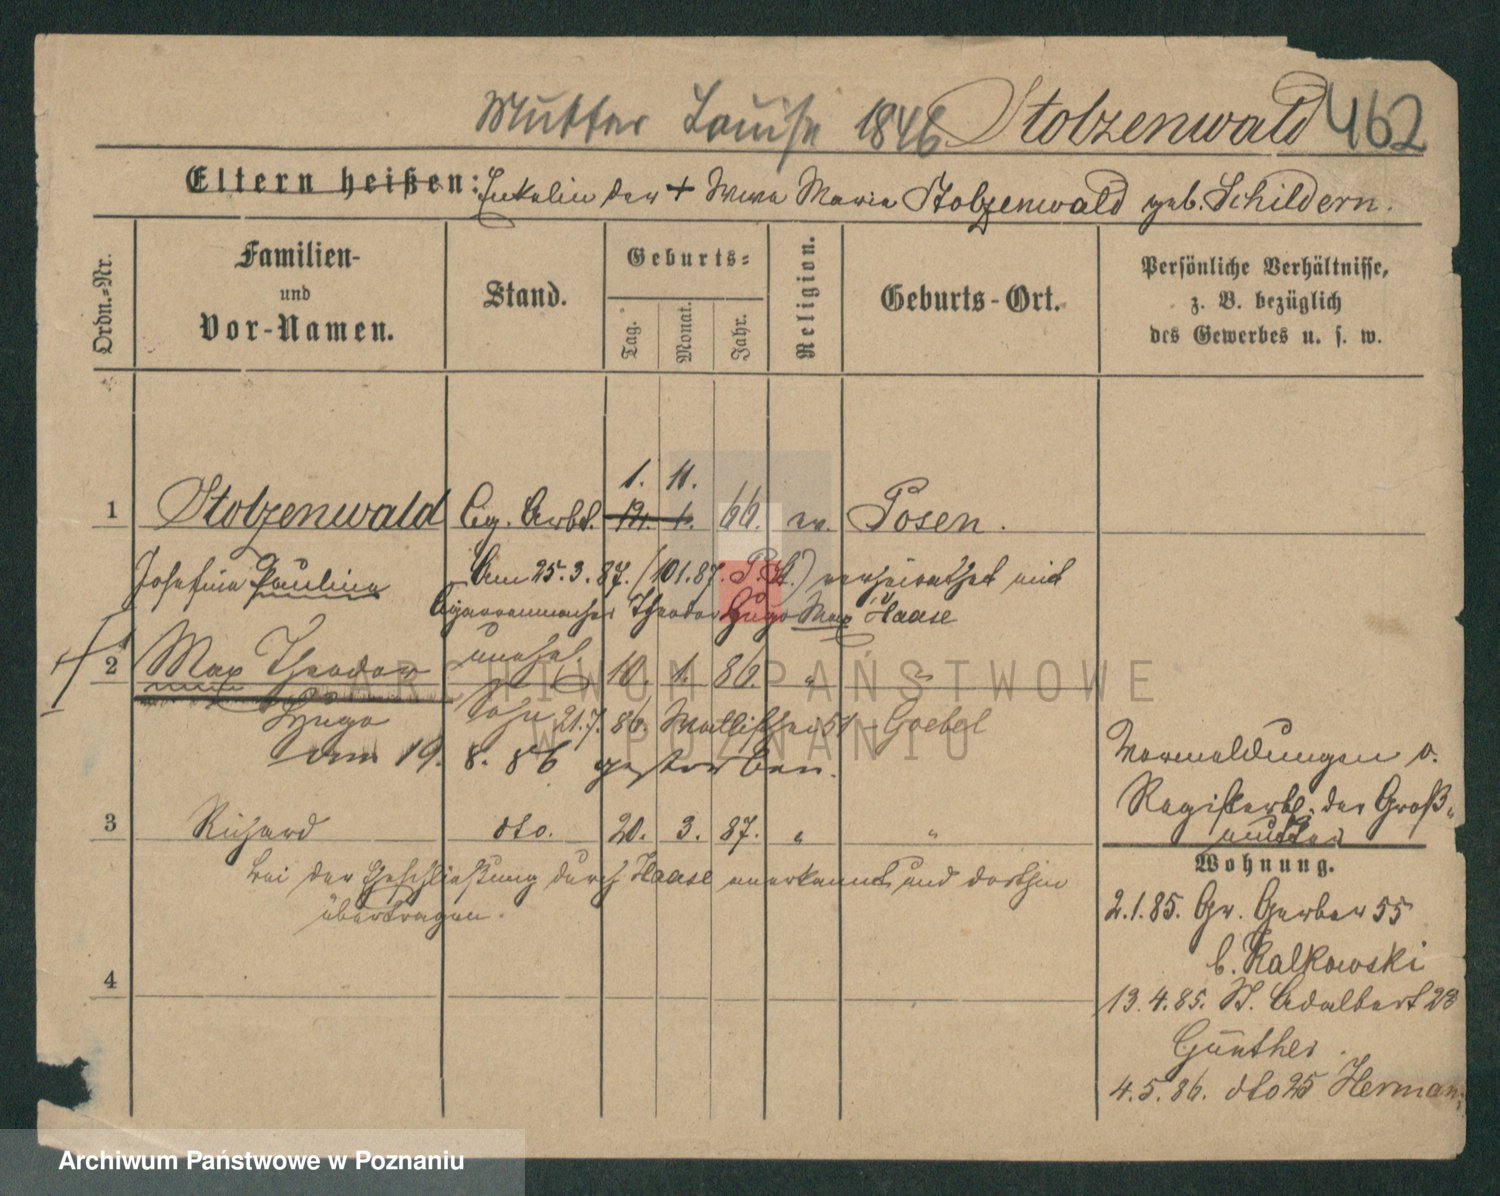 Mutter Louise 1846 Stolzenwald 462
Eltern heißen: Enkelin der + Wwe Marie Stolzenwald geb. Schildern.
Ordn.=Nr.
Familien-
und
Vor-Namen.
Stand.
Geburts=
Tag.
Monat.
Jahr.
Religion.
Geburts-Ort.
Persönliche Verhältnisse,
z. B. bezüglich
des Gewerbes u. s. w.
1. 11.
1 Stolzenwald Cig. Arbt. 12. 1. 66. ev. Posen.
Josefine Pauline Am 25.3.87. (101.87. P.St.) verheirathet mit
Cigarrenmacher Theodor Hugo Max Haase
unehel.
2 Max Theodor 10. 1. 86. " "
Hugo Sohn 21.7.86. 51 Goebel
am 19. 8. 86 gestorben.
3 Richard dto. 20. 3. 87. " "
bei der Eheschließung durch Haase anerkannt und dorthin
übertragen.
4
Vermeldungen v.
Registerbl. der Groß=
mutter
Wohnung.
2.1.85. Gr. Gerber 55
b. Kalkowski
13.4.85. St. Adalbert 28
Günther.
4.5.86. dto 25 Herman
ARCHIWUM PAŃSTWOWE
W POZNANIU
Archiwum Państwowe w Poznaniu